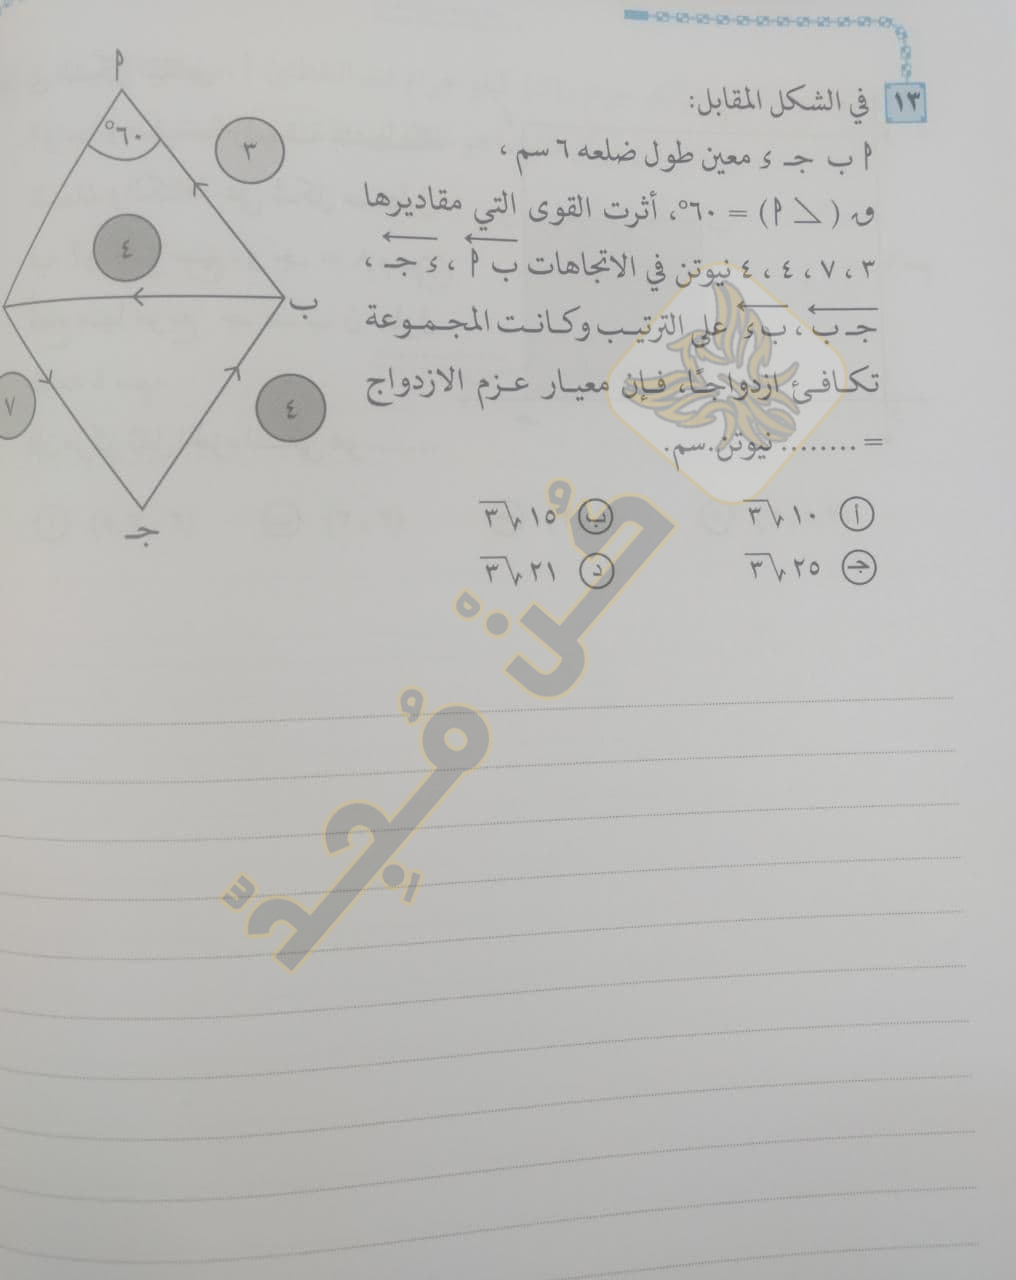 ١٣ في الشكل المقابل:
أ ب جـ ء معين طول ضلعه ٦ سم ،
ق (∠ أ) = ٦٠°، أثرت القوى التي مقاديرها
٣ ، ٧ ، ٤ ، ٤ نيوتن في الاتجاهات ب أ ، ء جـ ،
جـ ب ، ب ء على الترتيب وكانت المجموعة
تكافئ ازدواجًا، فإن معيار عزم الازدواج
= ........ نيوتن.سم.
أ ١٠√٣ ب ١٥√٣
جـ ٢٥√٣ د ٢١√٣
أ
٦٠°
٣
٤
ب
٧
٤
جـ